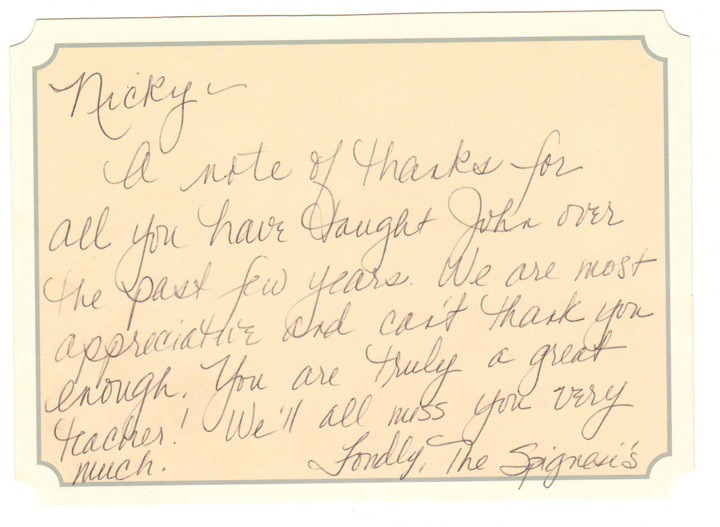 Nicky ~
A note of thanks for
all you have taught John over
the past few years. We are most
appreciative and can't thank you
enough. You are truly a great
teacher! We'll all miss you very
much.
Fondly, The Spignesi's